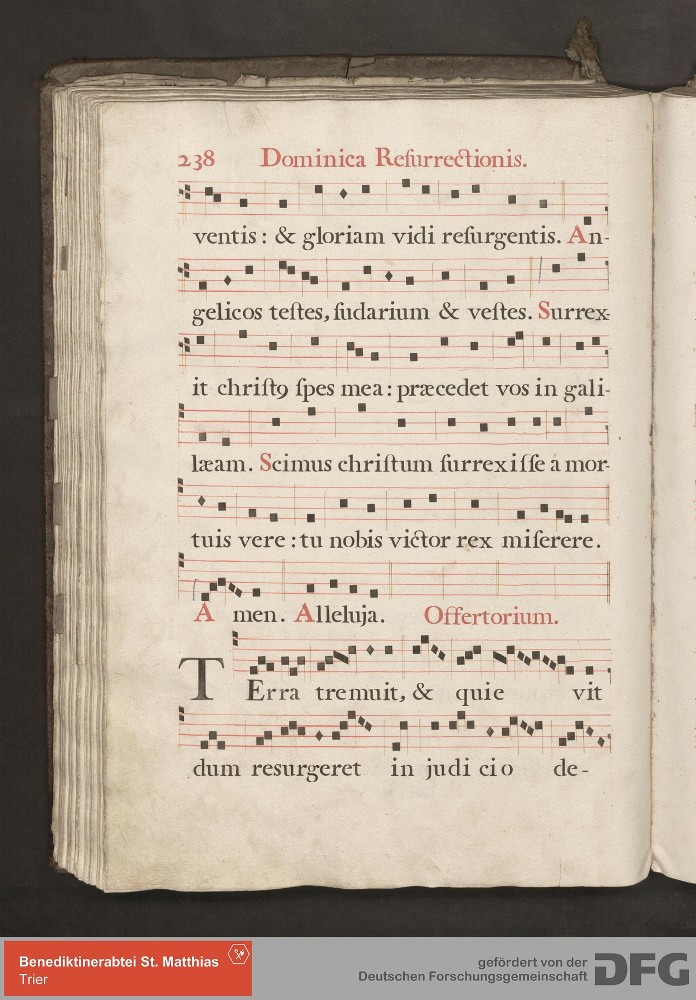 238 Dominica Reſurrectionis.
ventis : & gloriam vidi reſurgentis. An-
gelicos teſtes, ſudarium & veſtes. Surrex-
it chriſtꝯ ſpes mea : præcedet vos in gali-
læam. Scimus chriſtum ſurrexiſſe a mor-
tuis vere : tu nobis victor rex miſerere.
A men. Alleluja. Offertorium.
TErra tremuit, & quie vit
dum resurgeret in judi cio de-
Benediktinerabtei St. Matthias
Trier
gefördert von der
Deutschen Forschungsgemeinschaft
DFG